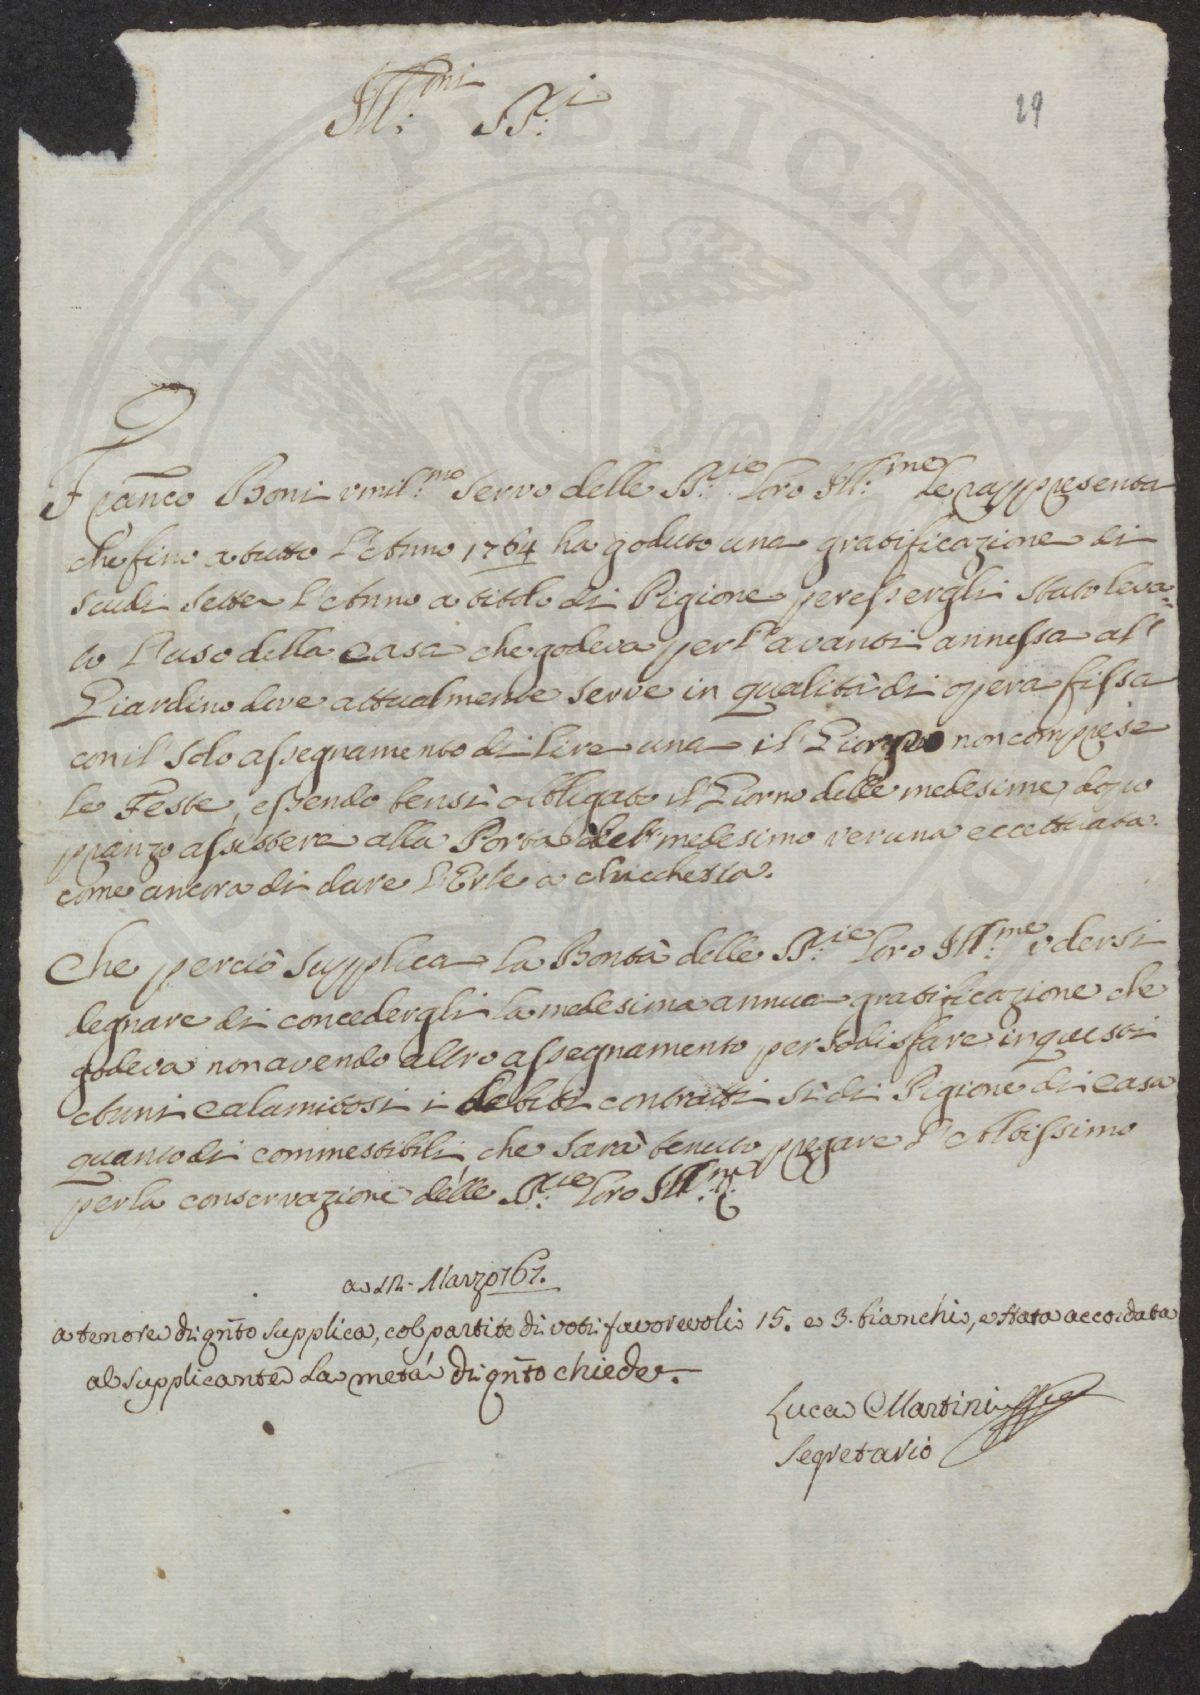 29
Ill:mi SS:i
Franco Boni umil:mo servo delle SS:ie Loro Ill:me Le rappresenta
che fino a tutto l'Anno 1764 ha goduto una gratificazione di
scudi sette l'Anno a titolo di Pigione per essergli stato leva=
to l'uso della Casa che godeva per l'avanti annessa al
Giardino dove attualmente serve in qualità di opera fissa
con il solo assegnamento di lire una il Giorno non comprese
le Feste, essendo bensì obbligato il Giorno delle medesime dopo
pranzo assistere alla Porta del medesimo veruna eccettuata.
come ancora di dare l'Erbe a chicchesia.
Che perciò supplica la Bontà delle SS:ie Loro Ill:me
degnare di concedergli la medesima annua gratificazione che
godeva non avendo altro assegnamento per sodisfare in questi
Anni Calamitosi i debiti contratti sì di Pigione di Casa
quanto di commestibili, che sarà tenuto pregare l'Altissimo
per la conservazione delle SS:ie Loro Ill:me
a Marzo 1767.
a tenore di qnto supplica, col partito di voti favorevoli 15. e 3. bianchi, è stata accordata
al supplicante la metà di qnto chiede.
Luca Martini
Segretario
PUBLICAE